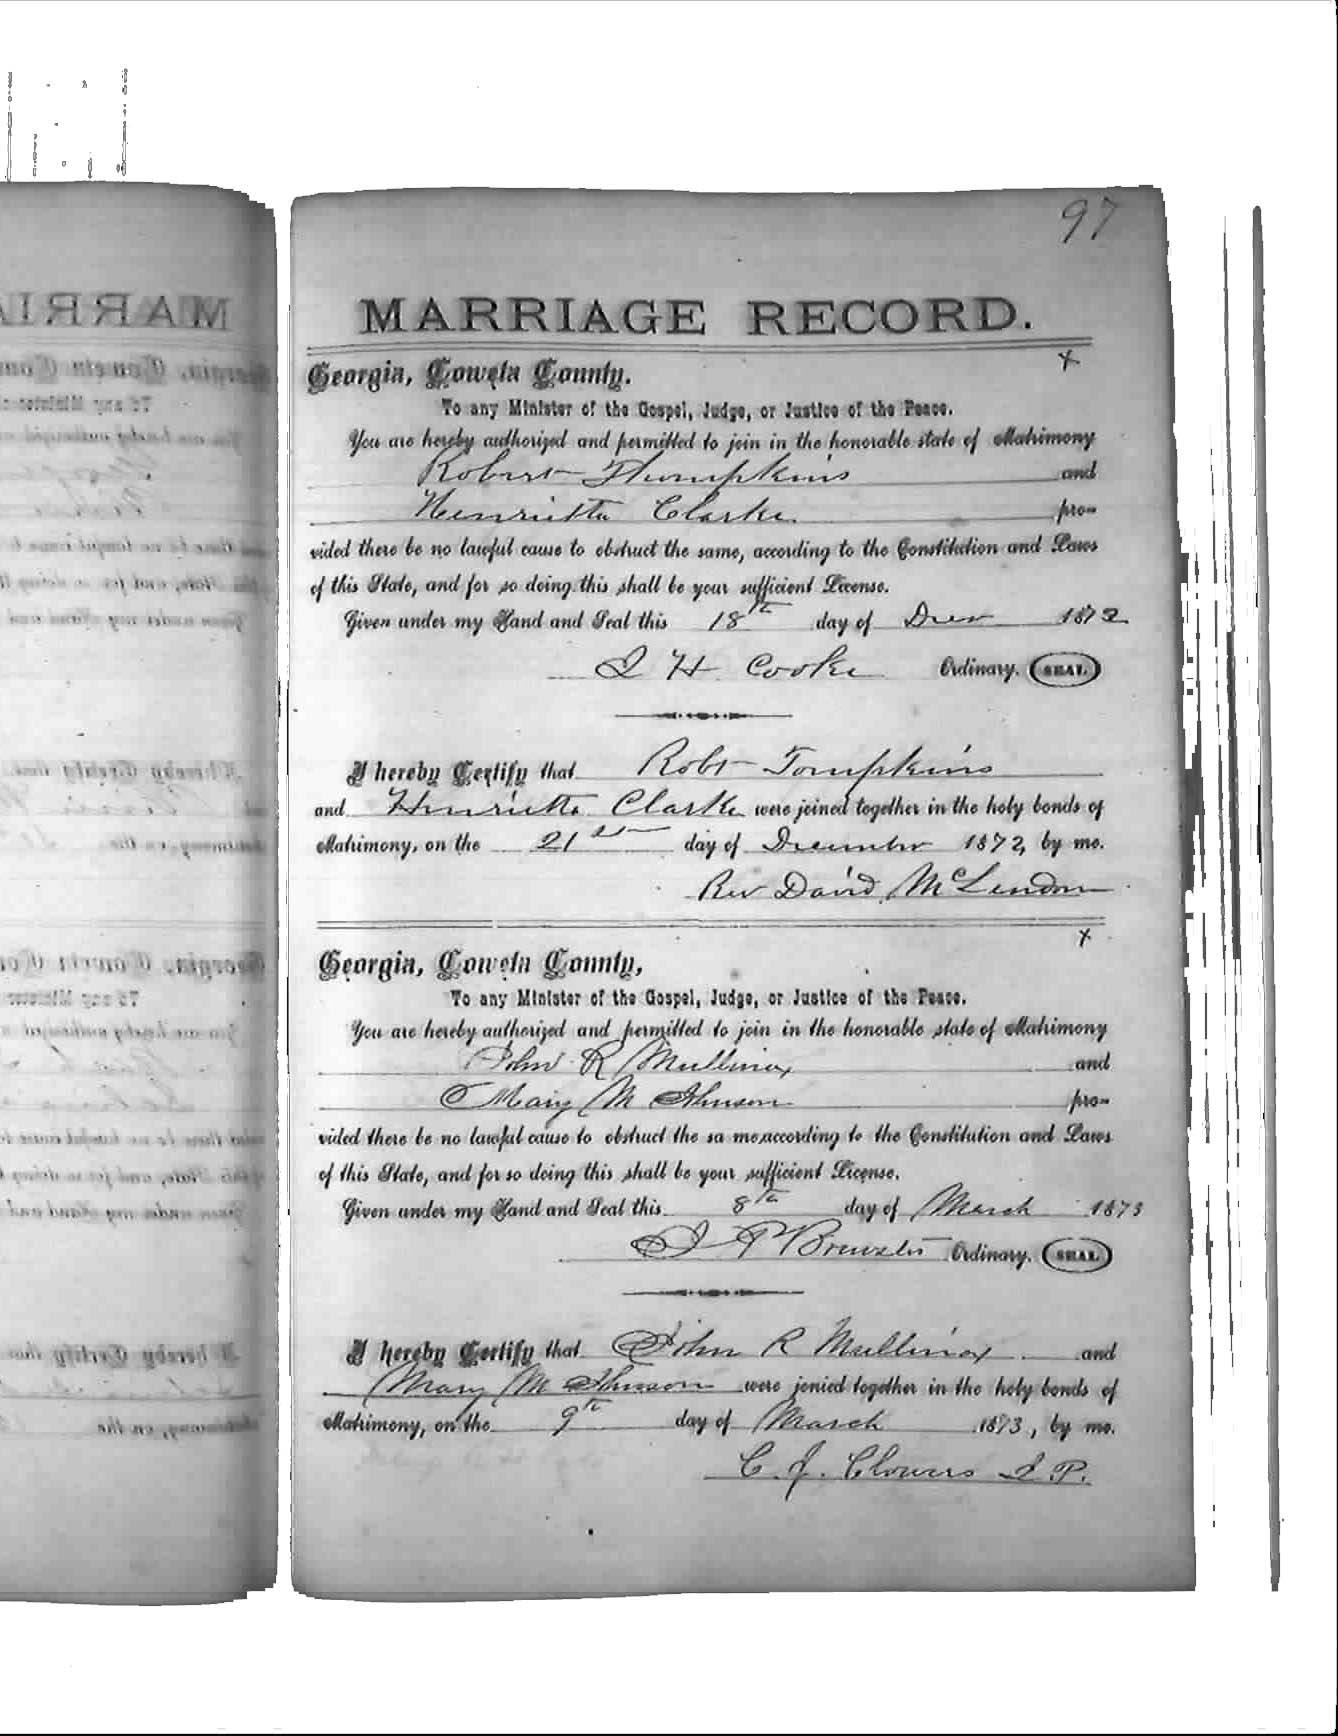 97
MARRIAGE RECORD.
x
Georgia, Coweta County.
To any Minister of the Gospel, Judge, or Justice of the Peace.
You are hereby authorized and permitted to join in the honorable state of Matrimony
Robert Thompkins and
Henrietta Clarke pro-
vided there be no lawful cause to obstruct the same, according to the Constitution and Laws
of this State, and for so doing this shall be your sufficient License.
Given under my Hand and Seal this 18th day of Decr 1872
J H Cooke Ordinary. SEAL.
I hereby Certify that Robt Tompkins
and Henrietta Clarke were joined together in the holy bonds of
Matrimony, on the 21st day of December 1872, by me.
Rev David McLendon
x
Georgia, Coweta County,
To any Minister of the Gospel, Judge, or Justice of the Peace.
You are hereby authorized and permitted to join in the honorable state of Matrimony
John R Mullinax and
Mary M Johnson pro-
vided there be no lawful cause to obstruct the sa me,according to the Constitution and Laws
of this State, and for so doing this shall be your sufficient License.
Given under my Hand and Seal this 8th day of March 1873
J P Brewster Ordinary. SEAL.
I hereby Certify that John R Mullinax and
Mary M Johnson were jonied together in the holy bonds of
Matrimony, on the 9th day of March 1873, by me.
C. J. Clowers J. P.